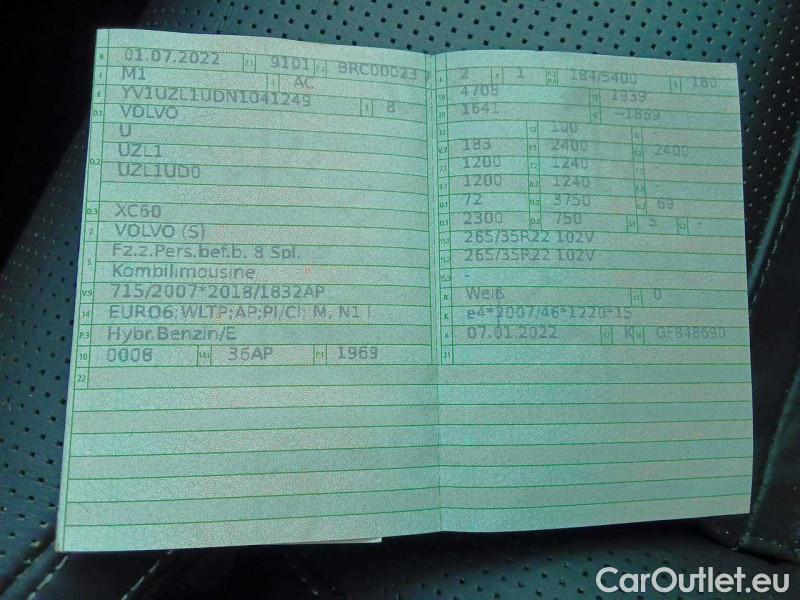 B 01.07.2022 2.1 9101 2.2 BRC00023 7
J M1 4 AC
E YV1UZL1UDN1041249 3 8
D.1 VOLVO
U
D.2 UZL1
UZL1UD0
D.3 XC60
2 VOLVO (S)
5 Fz.z.Pers.bef.b. 8 Spl.
Kombilimousine
V.9 715/2007*2018/1832AP
14 EURO6;WLTP;AP;PI/CI; M, N1 I
P.3 Hybr.Benzin/E
10 0008 14.1 36AP P.1 1969
22
L 2 9 1 P.2 P.4 184/5400 T 180
18 4708 19 1939
20 1641 G --1869
12 - 13 100 Q -
V.7 183 F.1 2400 F.2 2400
7.1 1200 7.2 1240 7.3 -
8.1 1200 8.2 1240 8.3 -
U.1 72 U.2 3750 U.3 69
O.1 2300 O.2 750 S.1 5 S.2 -
15.1 265/35R22 102V
15.2 265/35R22 102V
15.3 -
R Weiß 11 0
K e4*2007/46*1220*15
6 07.01.2022 17 K 16 GF848690
21
CarOutlet.eu